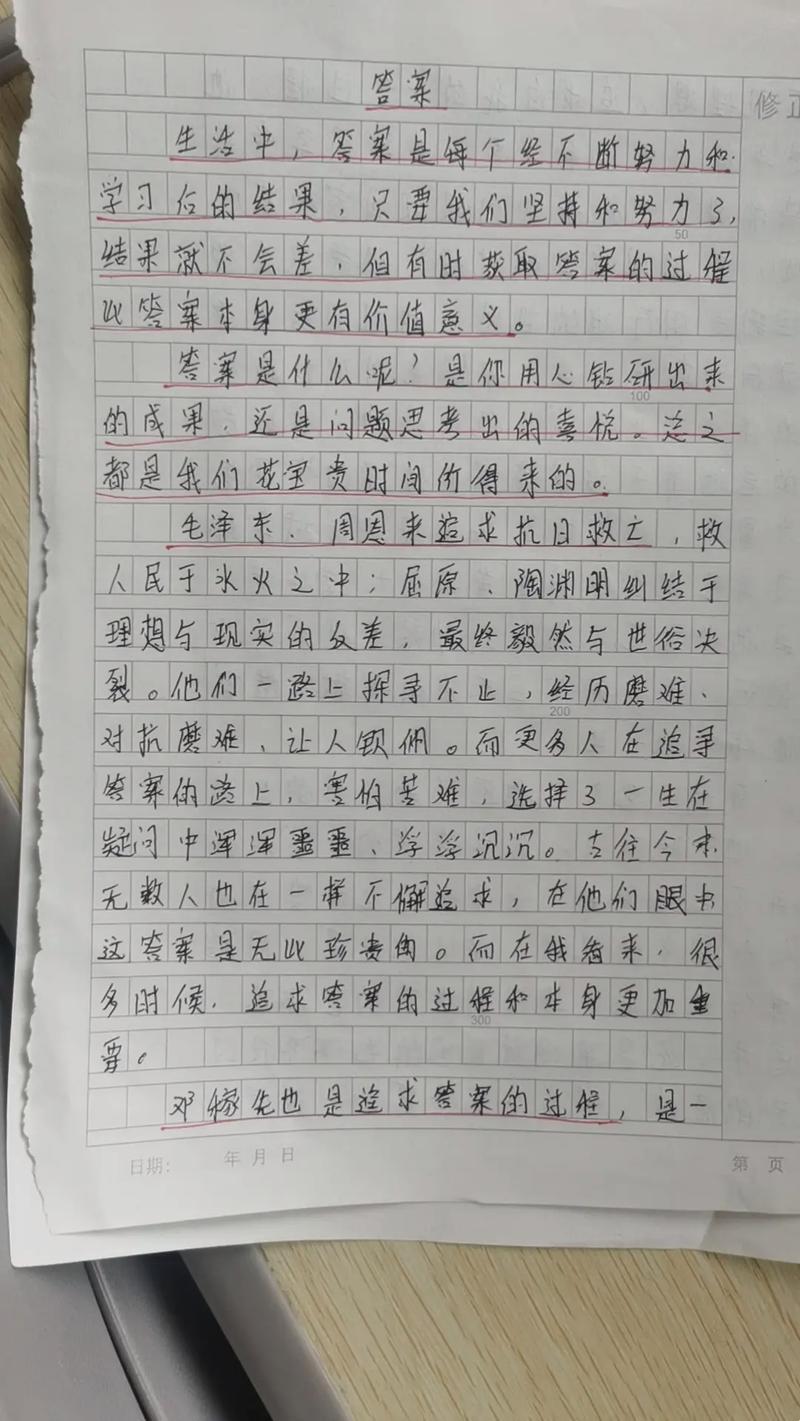 答案
修正
生活中，答案是每个经不断努力和
学习后的结果，只要我们坚持和努力了，
50
结果就不会差，但有时获取答案的过程
比答案本身更有价值意义。
答案是什么呢？是你用心钻研出来
100
的成果，还是问题思考出的喜悦。总之
都是我们花宝贵时间所得来的。
毛泽东、周恩来追求抗日救亡，救
人民于水火之中；屈原、陶渊明纠结于
理想与现实的反差，最终毅然与世俗决
裂。他们一路上探寻不止，经历磨难、
200
对抗磨难、让人钦佩。而更多人在追寻
答案的路上，害怕苦难，选择了一生在
疑问中浑浑噩噩、浮浮沉沉。古往今来
无数人也在一样不懈追求，在他们眼中
这答案是无比珍贵的。而在我看来，很
多时候，追求答案的过程和本身更加重
300
要。
邓稼先也是追求答案的过程，是一
日期： 年 月 日
第 页